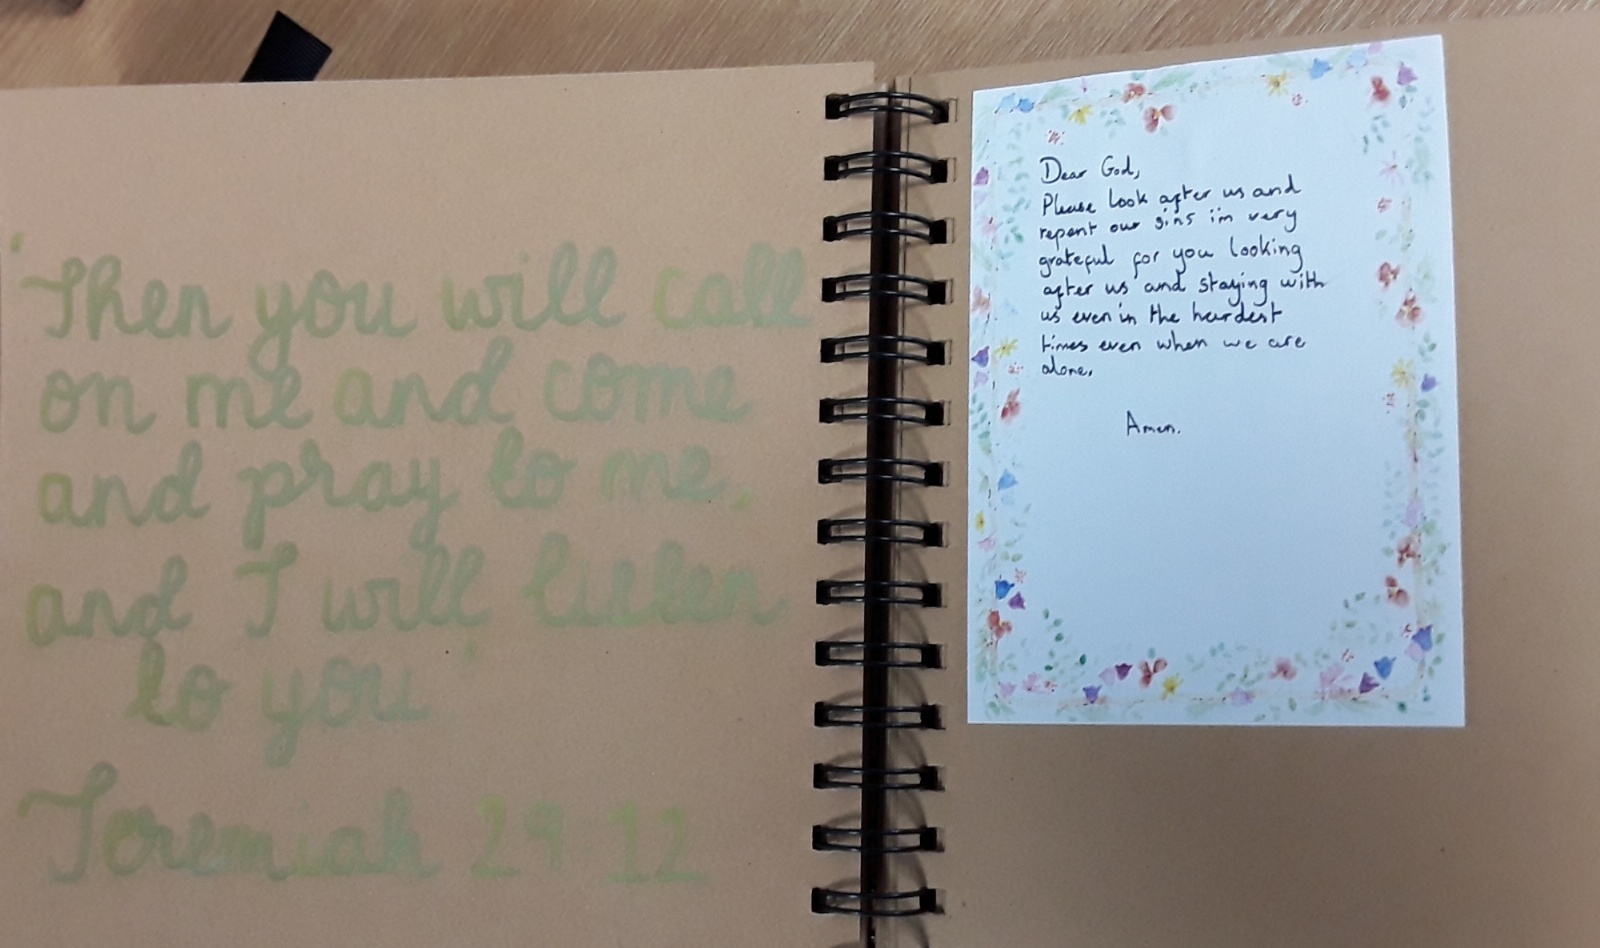 'Then you will call
on me and come
and pray to me,
and I will listen
to you'
Jeremiah 29:12
Dear God,
Please look after us and
repent our sins i'm very
grateful for you looking
after us and staying with
us even in the hardest
times even when we are
alone.
Amen.